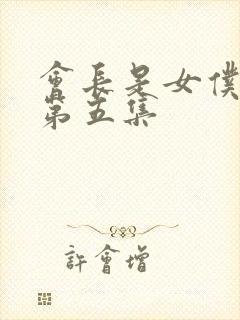 會長是女僕
第五集
許會增